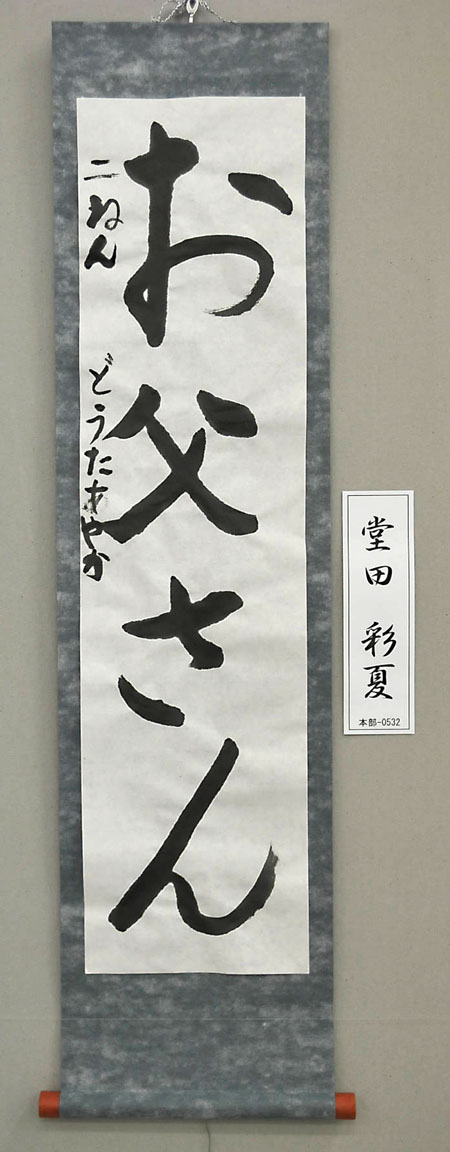 お父さん
二ねん どうたあやか
堂田 彩夏
本部-0532